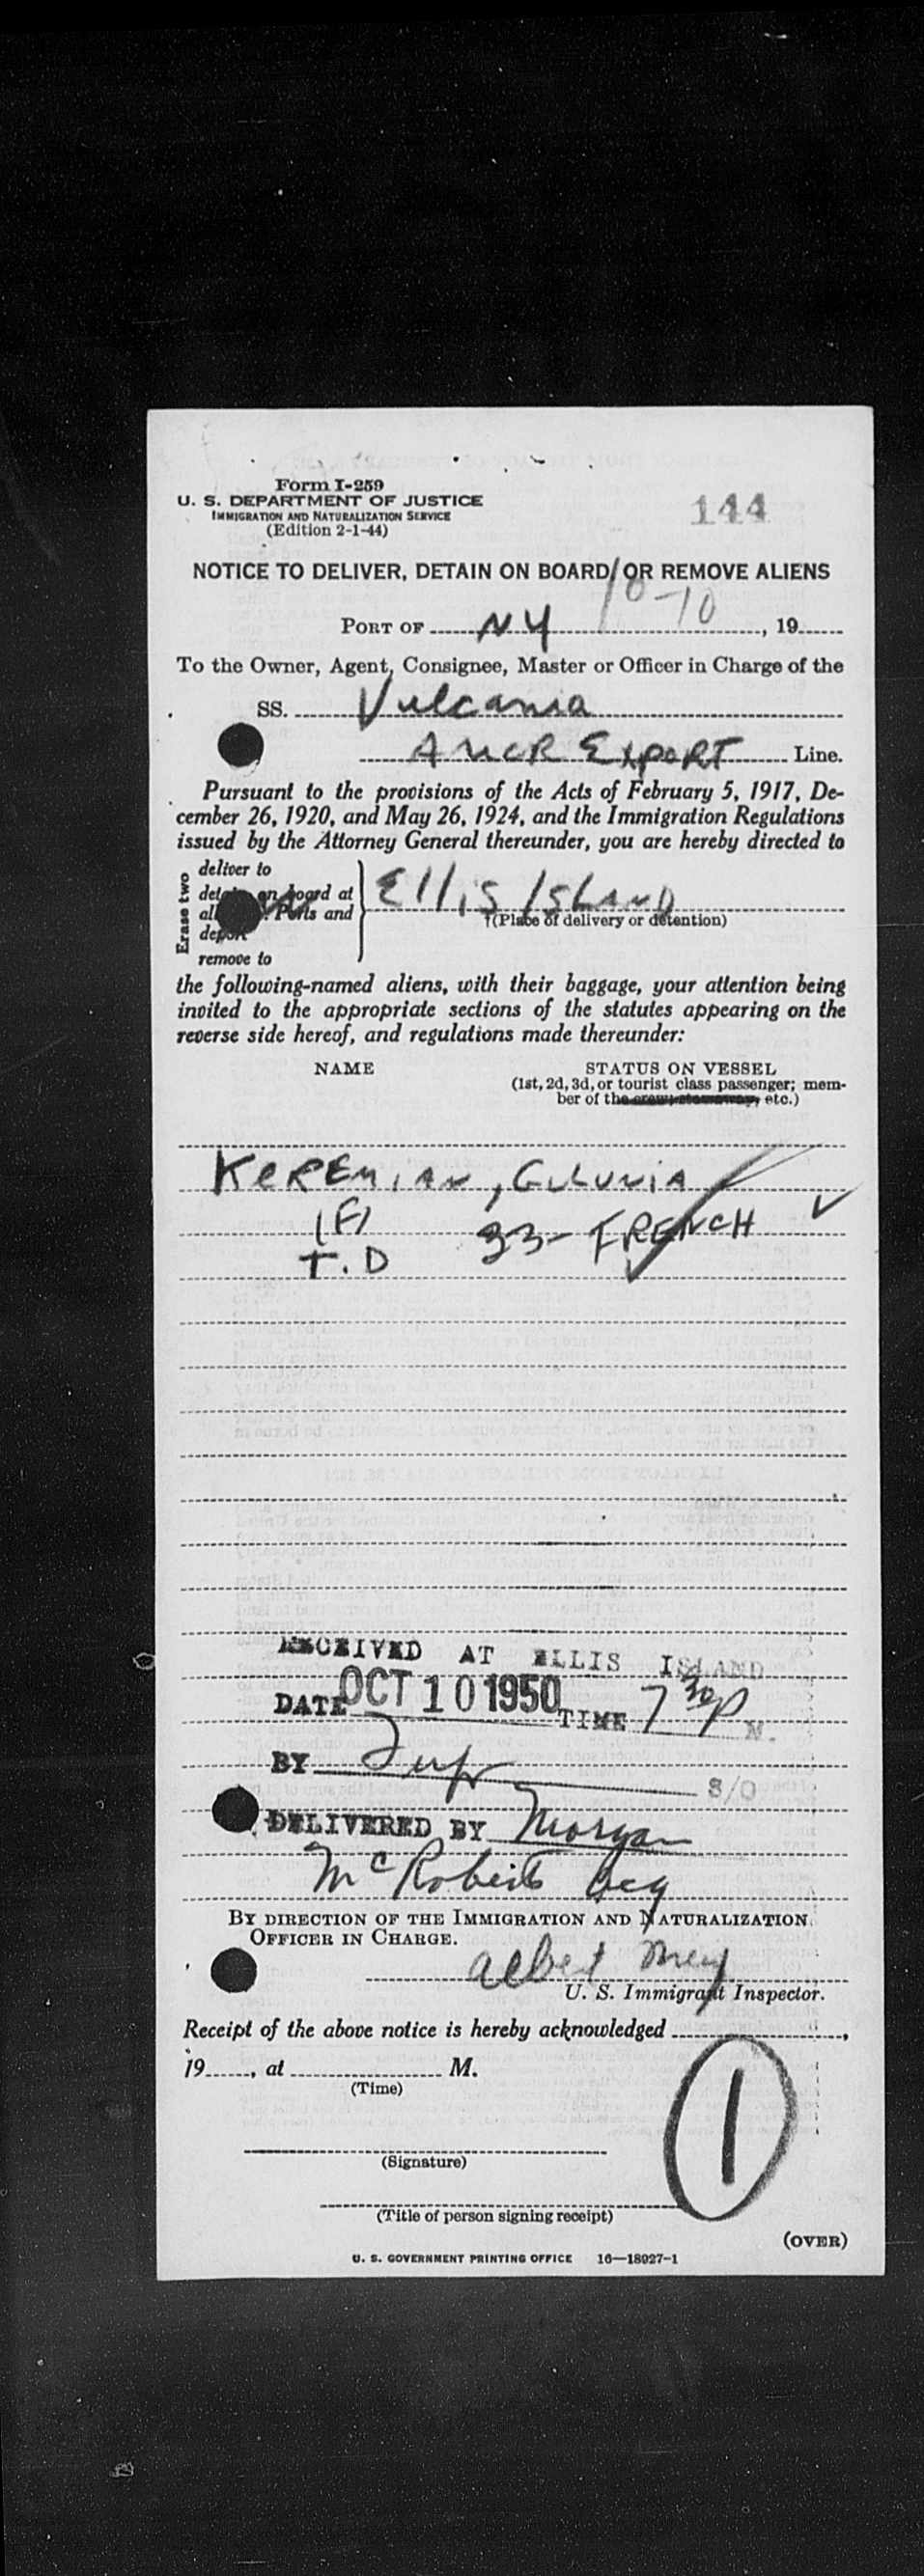 Form I-259
U. S. DEPARTMENT OF JUSTICE
IMMIGRATION AND NATURALIZATION SERVICE
(Edition 2-1-44)
144
NOTICE TO DELIVER, DETAIN ON BOARD, OR REMOVE ALIENS
PORT OF NY 10-10, 19
To the Owner, Agent, Consignee, Master or Officer in Charge of the
SS. Vulcania
AMER EXPORT Line.
Pursuant to the provisions of the Acts of February 5, 1917, De-
cember 26, 1920, and May 26, 1924, and the Immigration Regulations
issued by the Attorney General thereunder, you are hereby directed to
Erase two
deliver to
detain on board at
all Ports and
deport
remove to
Ellis Island
†(Place of delivery or detention)
the following-named aliens, with their baggage, your attention being
invited to the appropriate sections of the statutes appearing on the
reverse side hereof, and regulations made thereunder:
NAME STATUS ON VESSEL
(1st, 2d, 3d, or tourist class passenger; mem-
ber of the crew, stowaway, etc.)
KEREMIAN,
(F) 33- FRENCH
T.D
RECEIVED AT ELLIS ISLAND
DATE OCT 10 1950 TIME 7 30 P M.
BY S/O
DELIVERED BY Morgan
McRoberts
BY DIRECTION OF THE IMMIGRATION AND NATURALIZATION
OFFICER IN CHARGE.
Albert
U. S. Immigrant Inspector.
Receipt of the above notice is hereby acknowledged ,
19 , at M.
(Time)
1
(Signature)
(Title of person signing receipt)
(OVER)
U. S. GOVERNMENT PRINTING OFFICE 16—18927-1